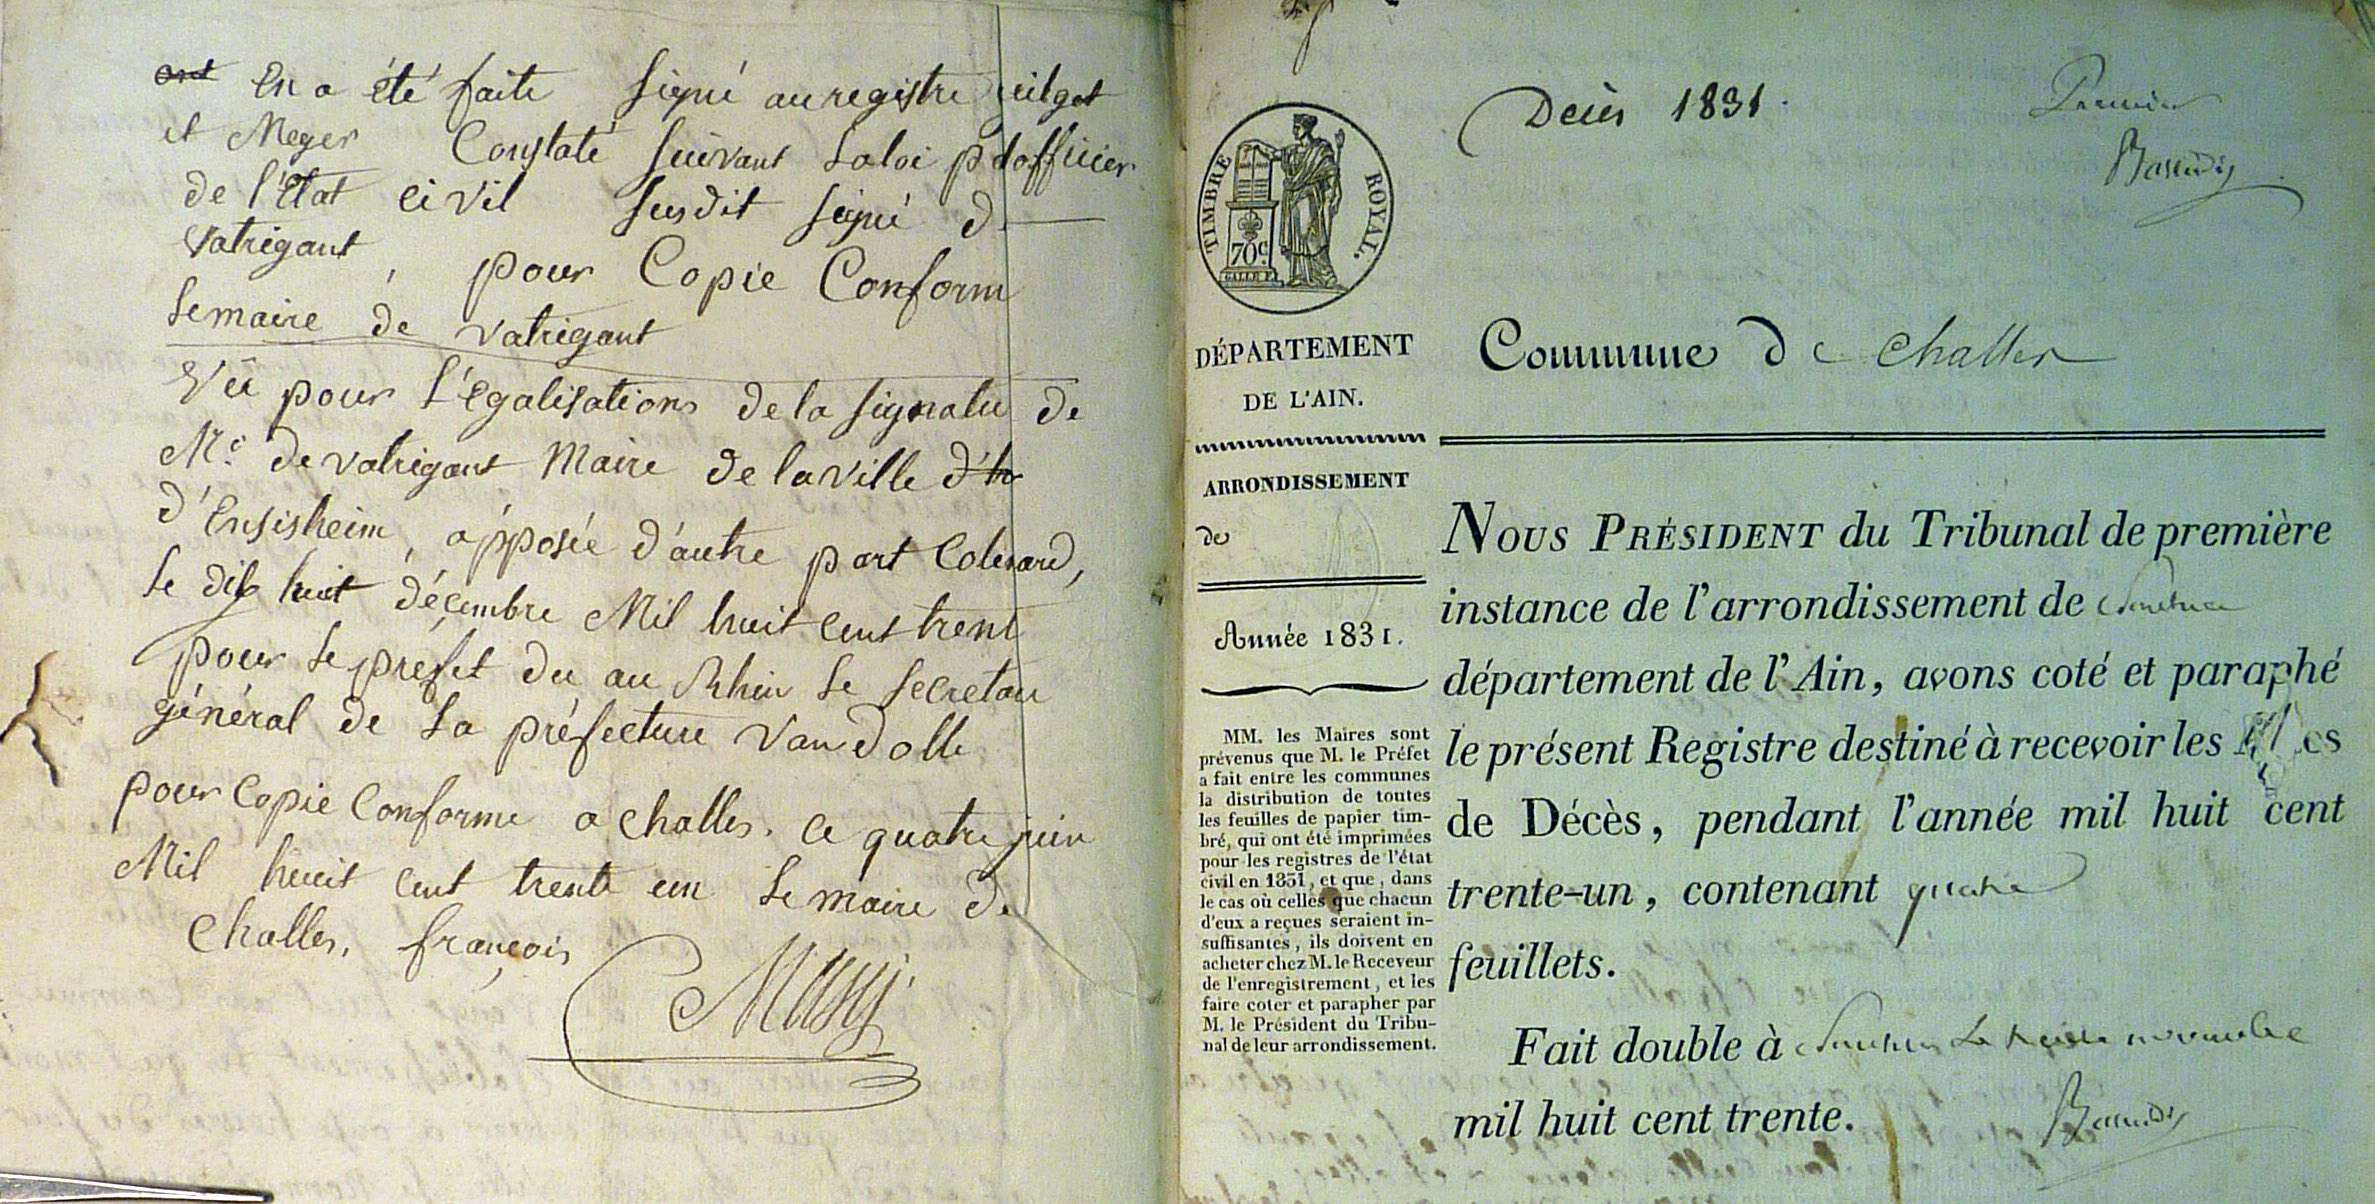 ont en a été faite signé au registre
et Meyer Constaté suivant la loi pr l'officier
de l'Etat civil susdit signé d
Vatrigant, pour Copie Conforme
le maire de vatrigant
Vû pour l'égalisations de la signatu de
Mr de vatrigant Maire de la ville
d'Ensisheim, apposée d'autre part
le dix huit décembre Mil huit cent trent
pour le préfet du au Rhin le secretair
général de la préfecture Van dolle
pour Copie Conforme a challes. ce quatre juin
Mil huit cent trente un le maire de
Challes, françois
Premier
Décès 1831.
TIMBRE ROYAL.
70c.
GALLE F.
DÉPARTEMENT
DE L'AIN.
ARRONDISSEMENT
de
Année 1831.
MM. les Maires sont
prévenus que M. le Préfet
a fait entre les communes
la distribution de toutes
les feuilles de papier tim-
bré, qui ont été imprimées
pour les registres de l'état
civil en 1831, et que, dans
le cas où celles que chacun
d'eux a reçues seraient in-
suffisantes, ils doivent en
acheter chez M. le Receveur
de l'enregistrement, et les
faire coter et parapher par
M. le Président du Tribu-
nal de leur arrondissement.
Commune de challes
NOUS PRÉSIDENT du Tribunal de première
instance de l'arrondissement de
département de l'Ain, avons coté et paraphé
le présent Registre destiné à recevoir les Actes
de Décès, pendant l'année mil huit cent
trente-un, contenant quatre
feuillets.
Fait double à Le trente novembre
mil huit cent trente.